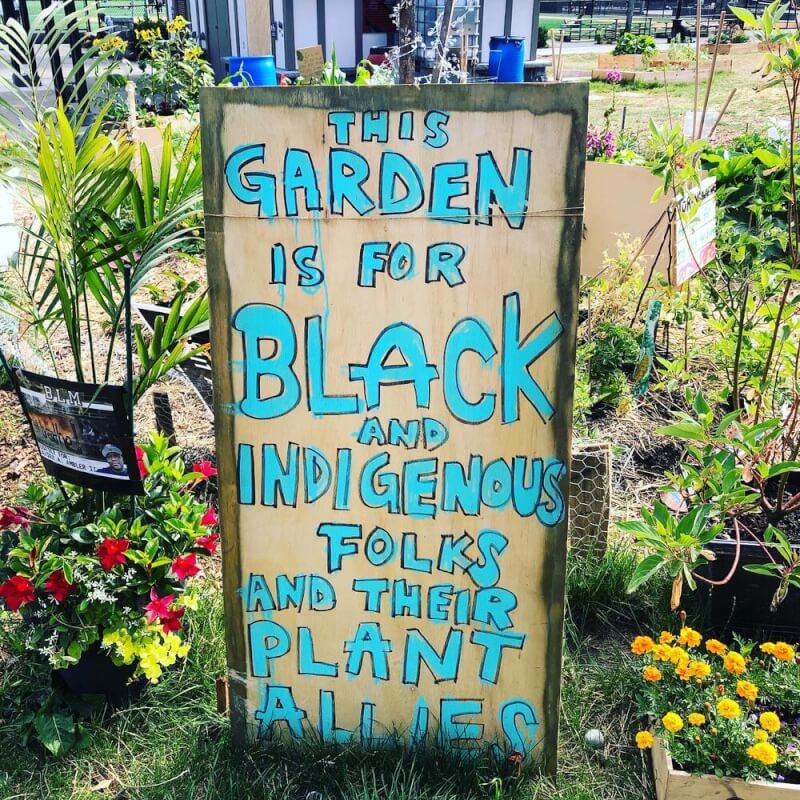 THIS
GARDEN
IS FOR
BLACK
AND
INDIGENOUS
FOLKS
AND THEIR
PLANT
ALLIES
B.L.M.